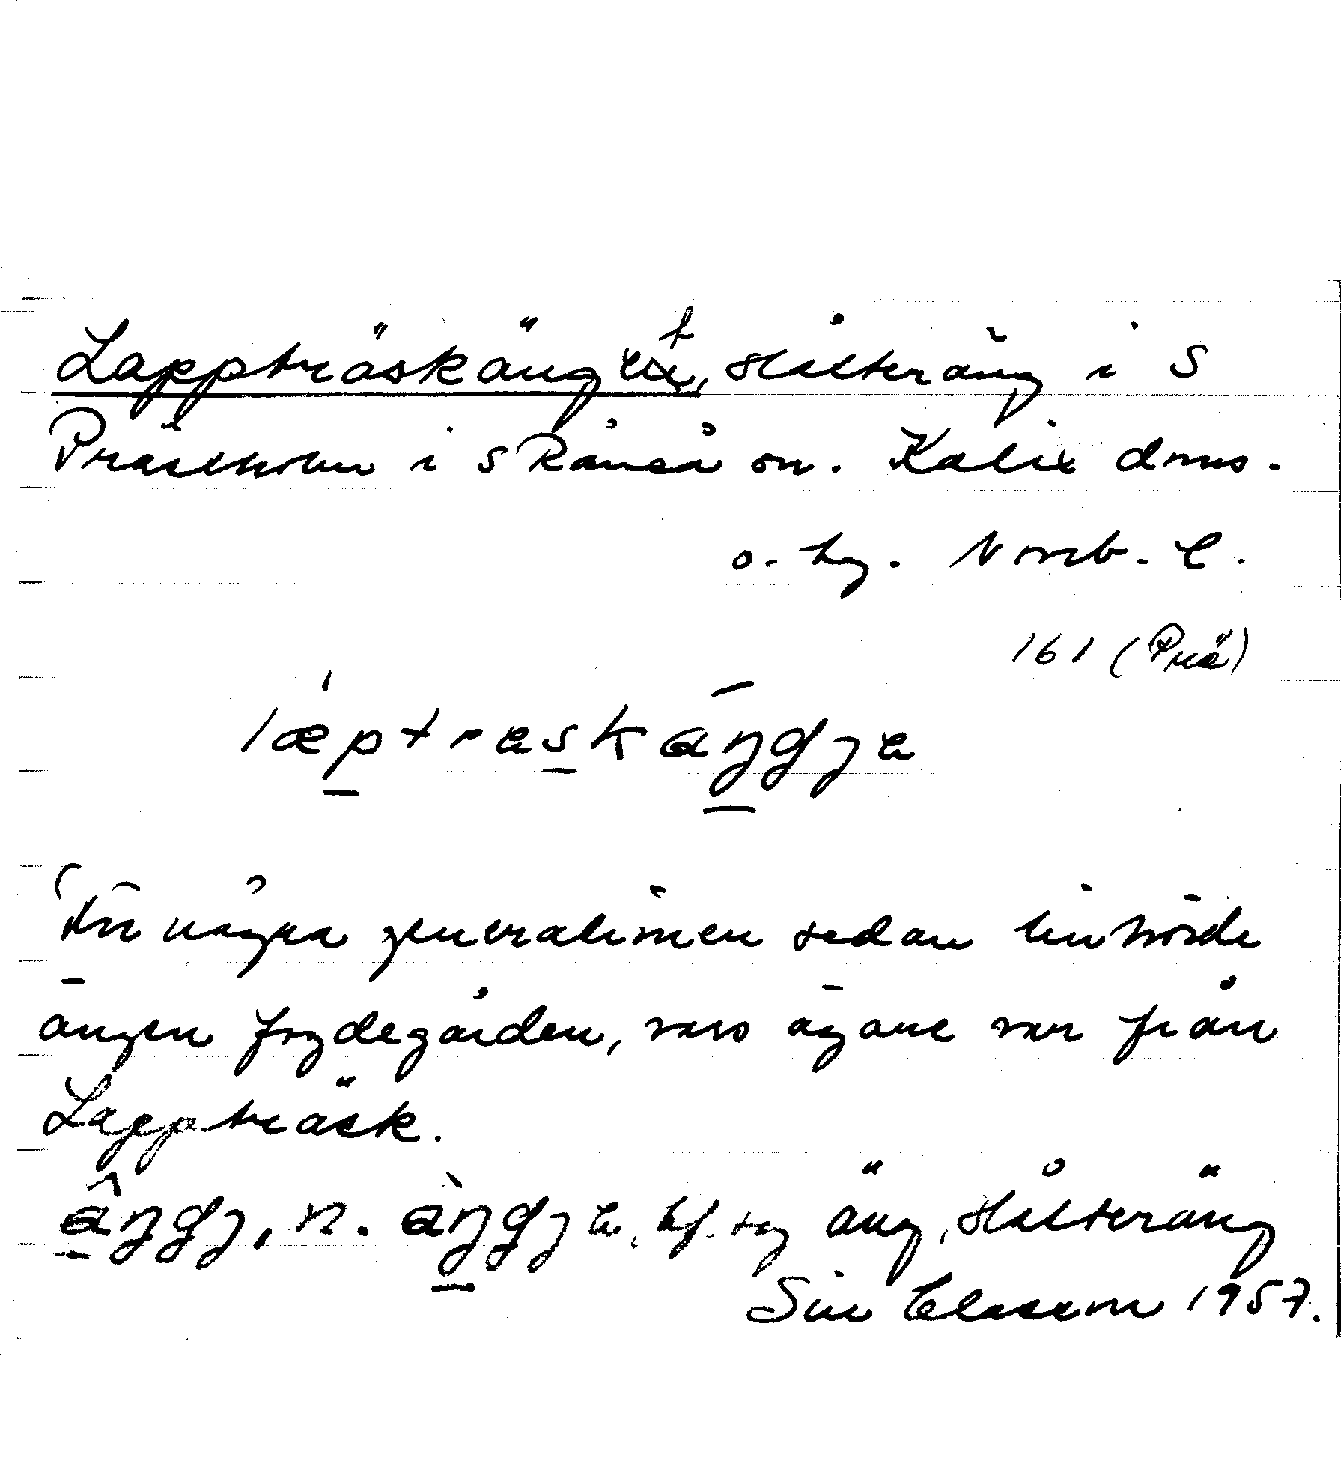 Lappträskänget, Slåtteräng i S
Prästholm i S Råneå sn. Kalix doms.
o. tg. Norrb. l.
161 (Prä)
læptraskaŋgja
För några generationer sedan tillhörde
ängen fogdegården, vars ägare var från
Lappträsk.
aŋgj, n. aŋgja, bf. sg äng, slåtteräng
Siw Classon 1957.